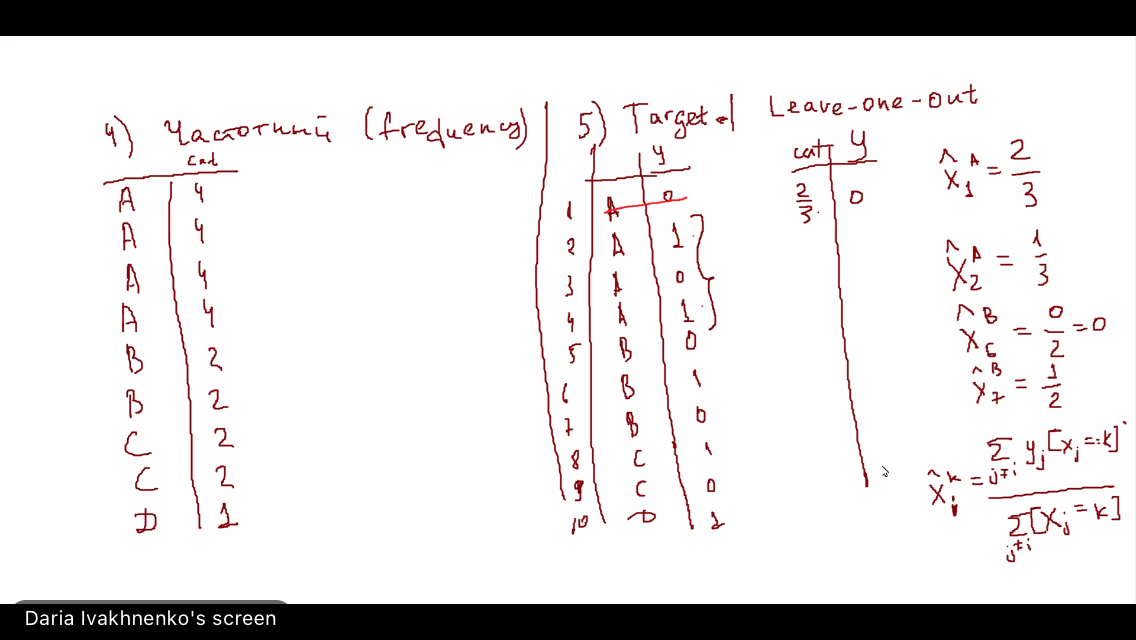 4) Частотный (frequency)
cat
A 4
A 4
A 4
A 4
B 2
B 2
C 2
C 2
D 1
5) Target
y
1 A 0
2 A 1
3 A 0
4 A 1
5 B 0
6 B 1
7 B 0
8 C 1
9 C 0
10 D 1
Leave-one-out
cat y
2/3 0
x̂₁ᴬ = 2/3
x̂₂ᴬ = 1/3
x̂₆ᴮ = 0/2 = 0
x̂₇ᴮ = 1/2
x̂ᵢᵏ = Σ_{j≠i} yⱼ[xⱼ = k] / Σ_{j≠i} [xⱼ = k]
Daria Ivakhnenko's screen